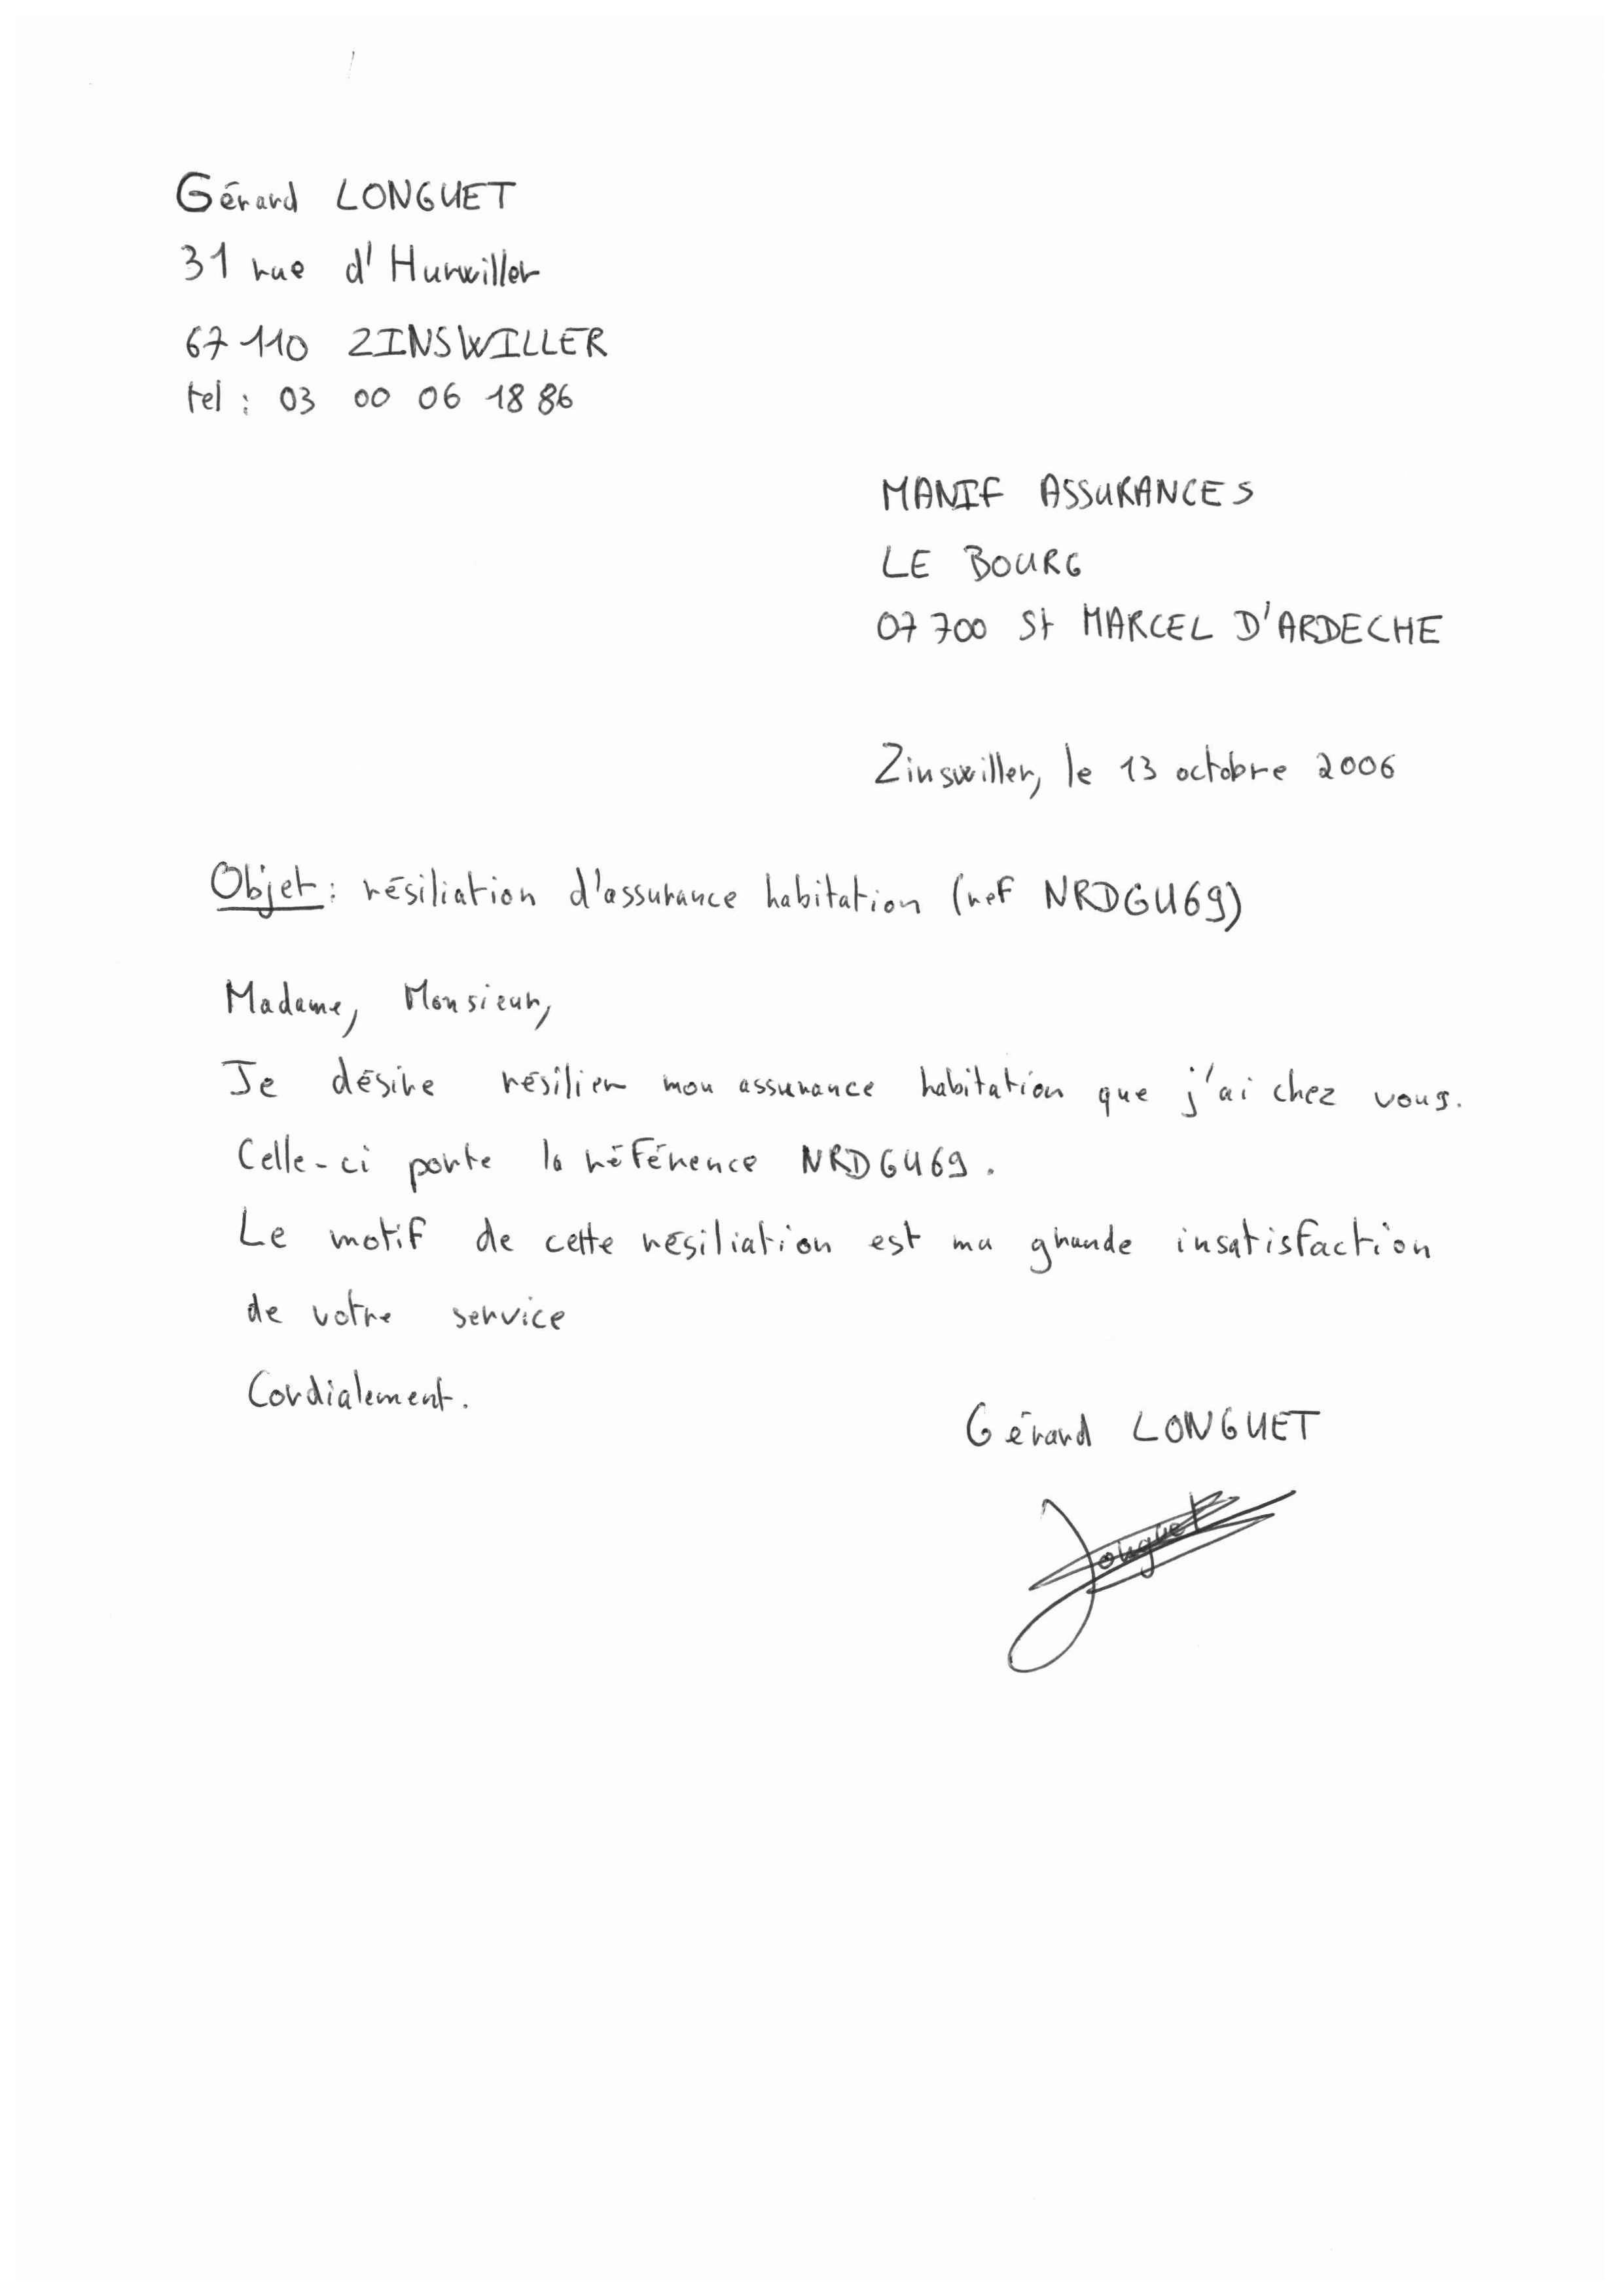 Gérard LONGUET
31 rue d'Hunwiller
67110 ZINSWILLER
tel : 03 00 06 18 86
MANIF ASSURANCES
LE BOURG
07700 St MARCEL D'ARDECHE
Zinswiller, le 13 octobre 2006
Objet : résiliation d'assurance habitation (ref NRDGU69)
Madame, Monsieur,
Je désire résilier mon assurance habitation que j'ai chez vous.
Celle-ci porte la référence NRDGU69.
Le motif de cette résiliation est ma grande insatisfaction
de votre service
Cordialement.
Gérard LONGUET
Longuet